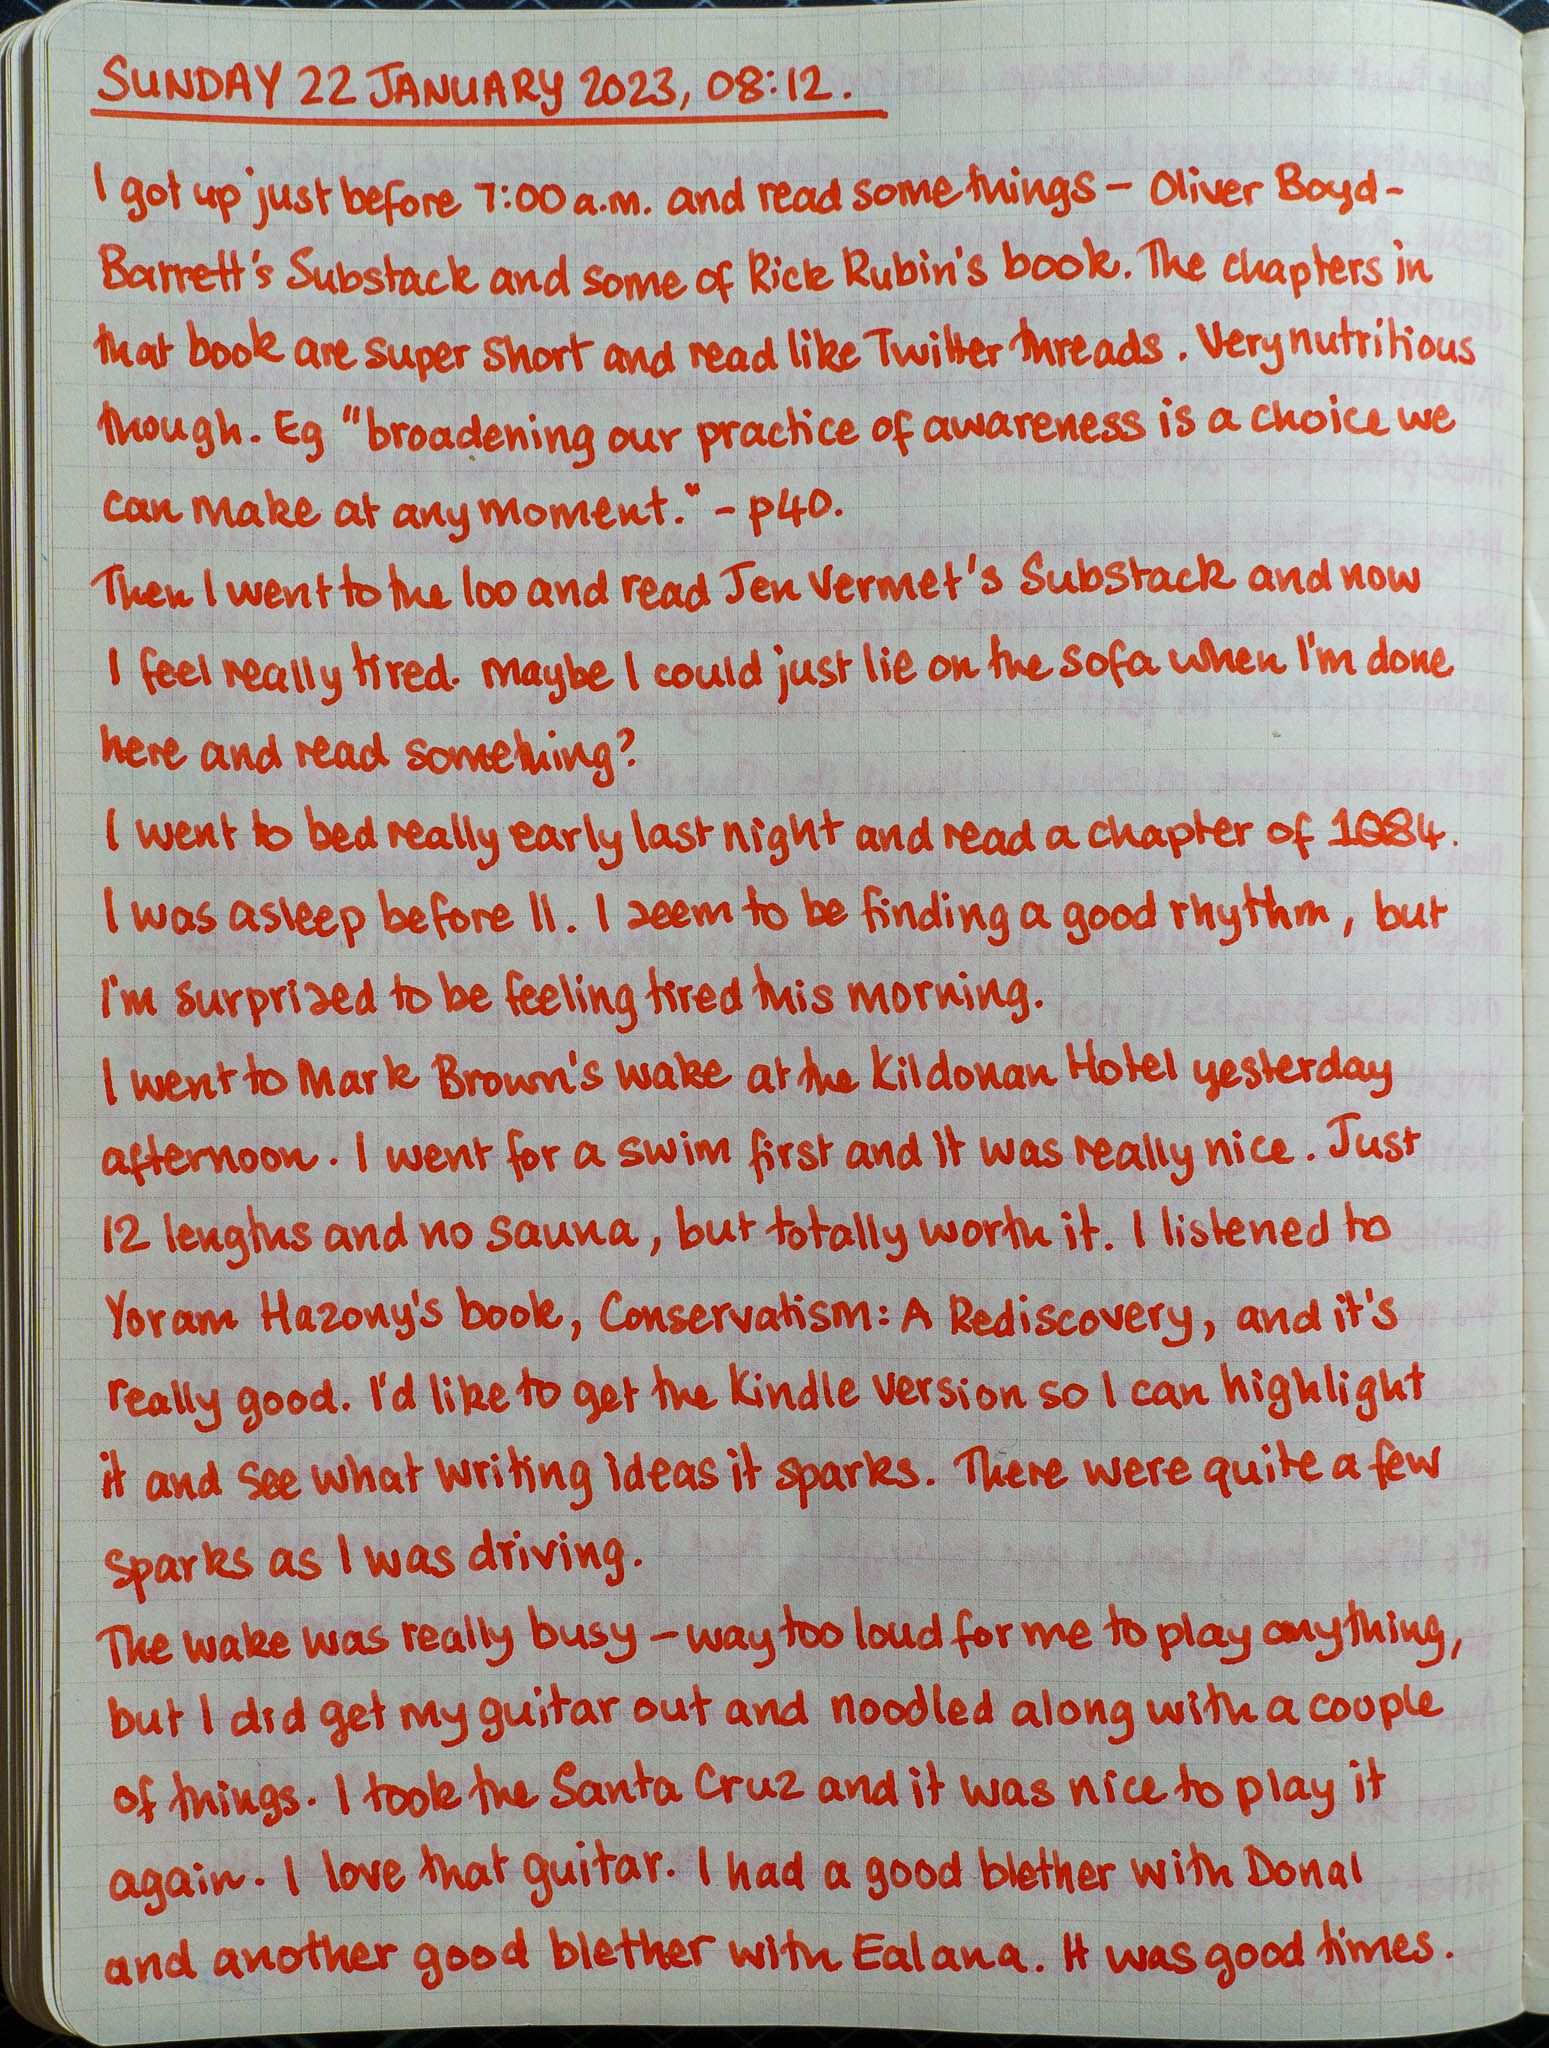 SUNDAY 22 JANUARY 2023, 08:12.
I got up just before 7:00 a.m. and read some things – Oliver Boyd-
Barrett's Substack and some of Rick Rubin's book. The chapters in
that book are super short and read like Twitter threads. Very nutritious
though. Eg "broadening our practice of awareness is a choice we
can make at any moment." – p40.
Then I went to the loo and read Jen Vermet's Substack and now
I feel really tired. Maybe I could just lie on the sofa when I'm done
here and read something?
I went to bed really early last night and read a chapter of 1Q84.
I was asleep before 11. I seem to be finding a good rhythm, but
I'm surprized to be feeling tired this morning.
I went to Mark Brown's wake at the Kildonan Hotel yesterday
afternoon. I went for a swim first and it was really nice. Just
12 lengths and no sauna, but totally worth it. I listened to
Yoram Hazony's book, Conservatism: A Rediscovery, and it's
really good. I'd like to get the Kindle version so I can highlight
it and see what writing ideas it sparks. There were quite a few
sparks as I was driving.
The wake was really busy – way too loud for me to play anything,
but I did get my guitar out and noodled along with a couple
of things. I took the Santa Cruz and it was nice to play it
again. I love that guitar. I had a good blether with Donal
and another good blether with Ealana. It was good times.